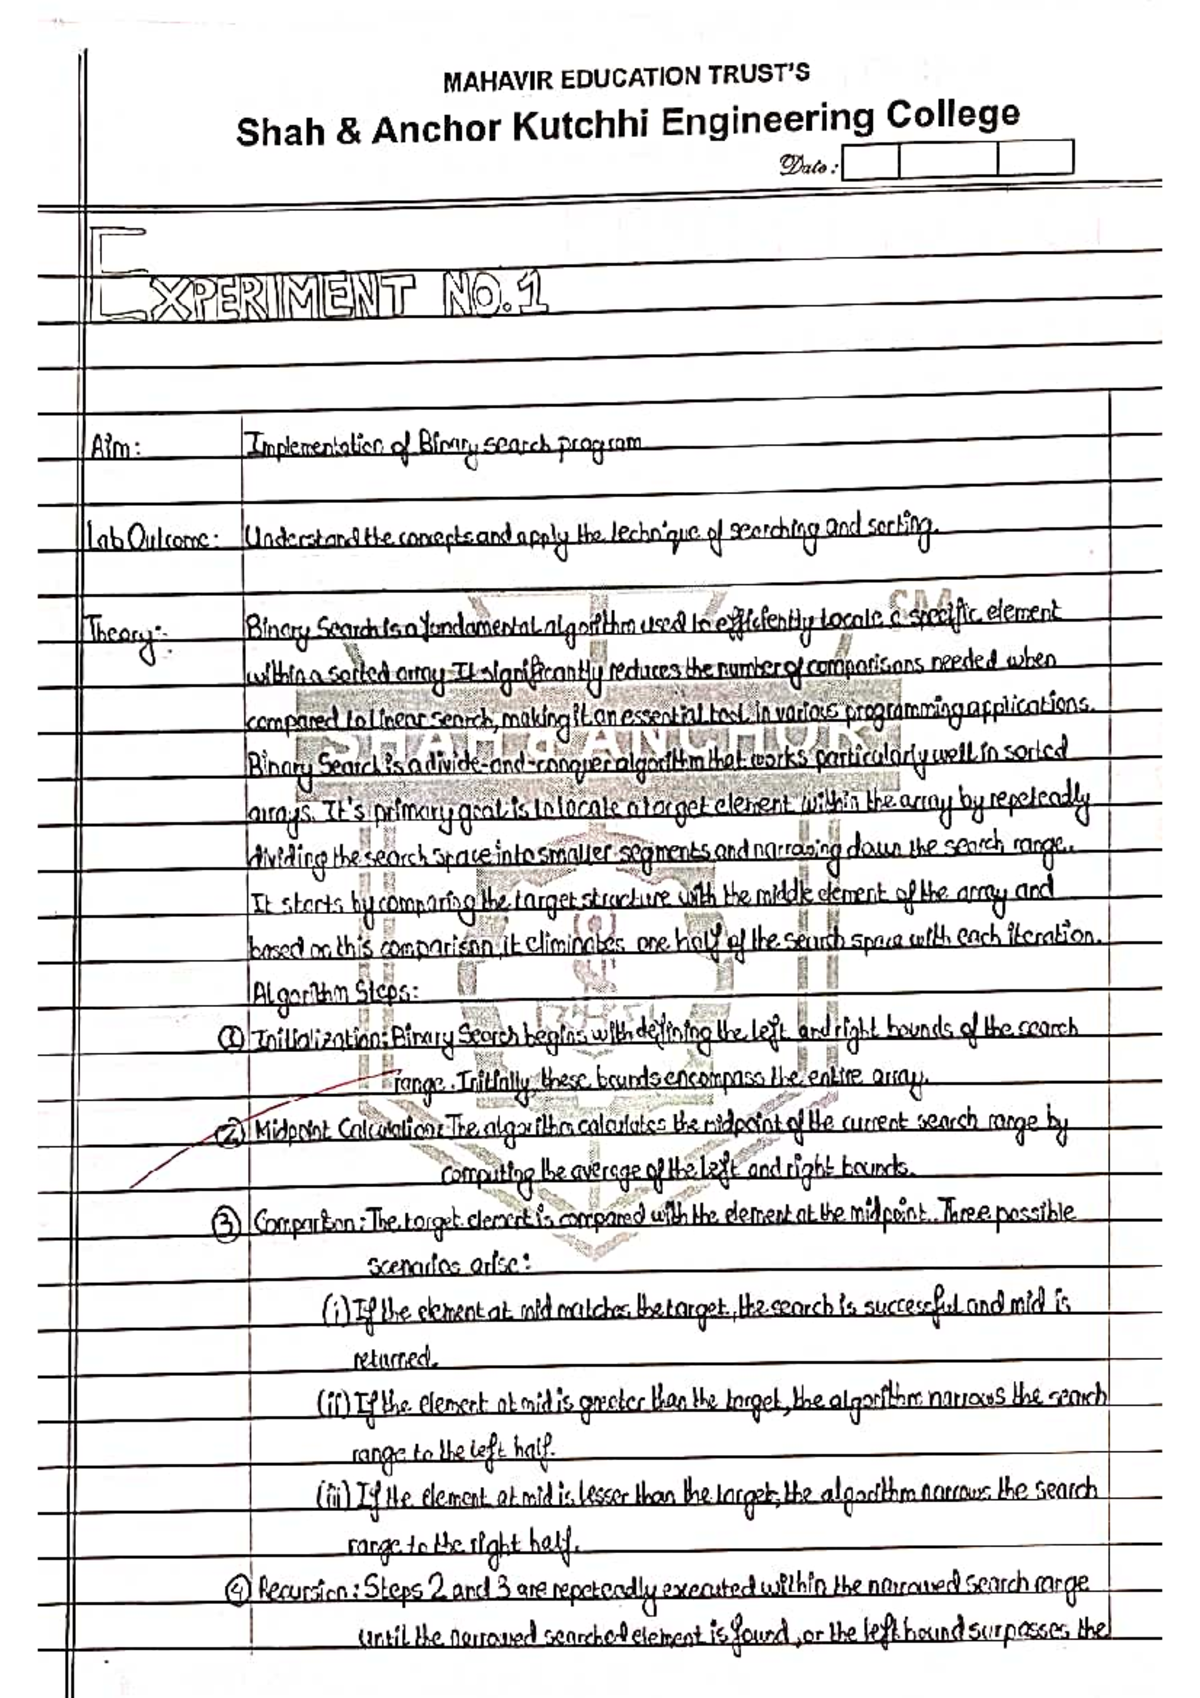 MAHAVIR EDUCATION TRUST'S
Shah & Anchor Kutchhi Engineering College
Date:
EXPERIMENT NO.1
Aim: Implementation of Binary search program
Lab Outcome: Understand the concepts and apply the technique of searching and sorting.
SM
Theory: Binary Search is a fundamental algorithm used to efficiently locate a specific element
within a sorted array. It significantly reduces the number of comparisons needed when
compared to linear search, making it an essential tool in various programming applications.
SHAH & ANCHOR
Binary Search is a divide-and-conquer algorithm that works particularly well in sorted
arrays. It's primary goal is to locate a target element within the array by repeteadly
dividing the search space into smaller segments and narrowing down the search range.
It starts by comparing the target structure with the middle element of the array and
based on this comparison, it eliminates one half of the search space with each iteration.
Algorithm Steps:
① Initialization: Binary Search begins with defining the left and right bounds of the search
range. Initially, these bounds encompass the entire array.
② Midpoint Calculation: The algorithm calculates the midpoint of the current search range by
computing the average of the left and right bounds.
③ Comparison: The target element is compared with the element at the midpoint. Three possible
scenarios arise:
(i) If the element at mid matches the target, the search is successful and mid is
returned.
(ii) If the element at mid is greater than the target, the algorithm narrows the search
range to the left half.
(iii) If the element at mid is lesser than the target, the algorithm narrows the search
range to the right half.
④ Recursion: Steps 2 and 3 are repeteadly executed within the narrowed search range
until the narrowed searched element is found, or the left bound surpasses the